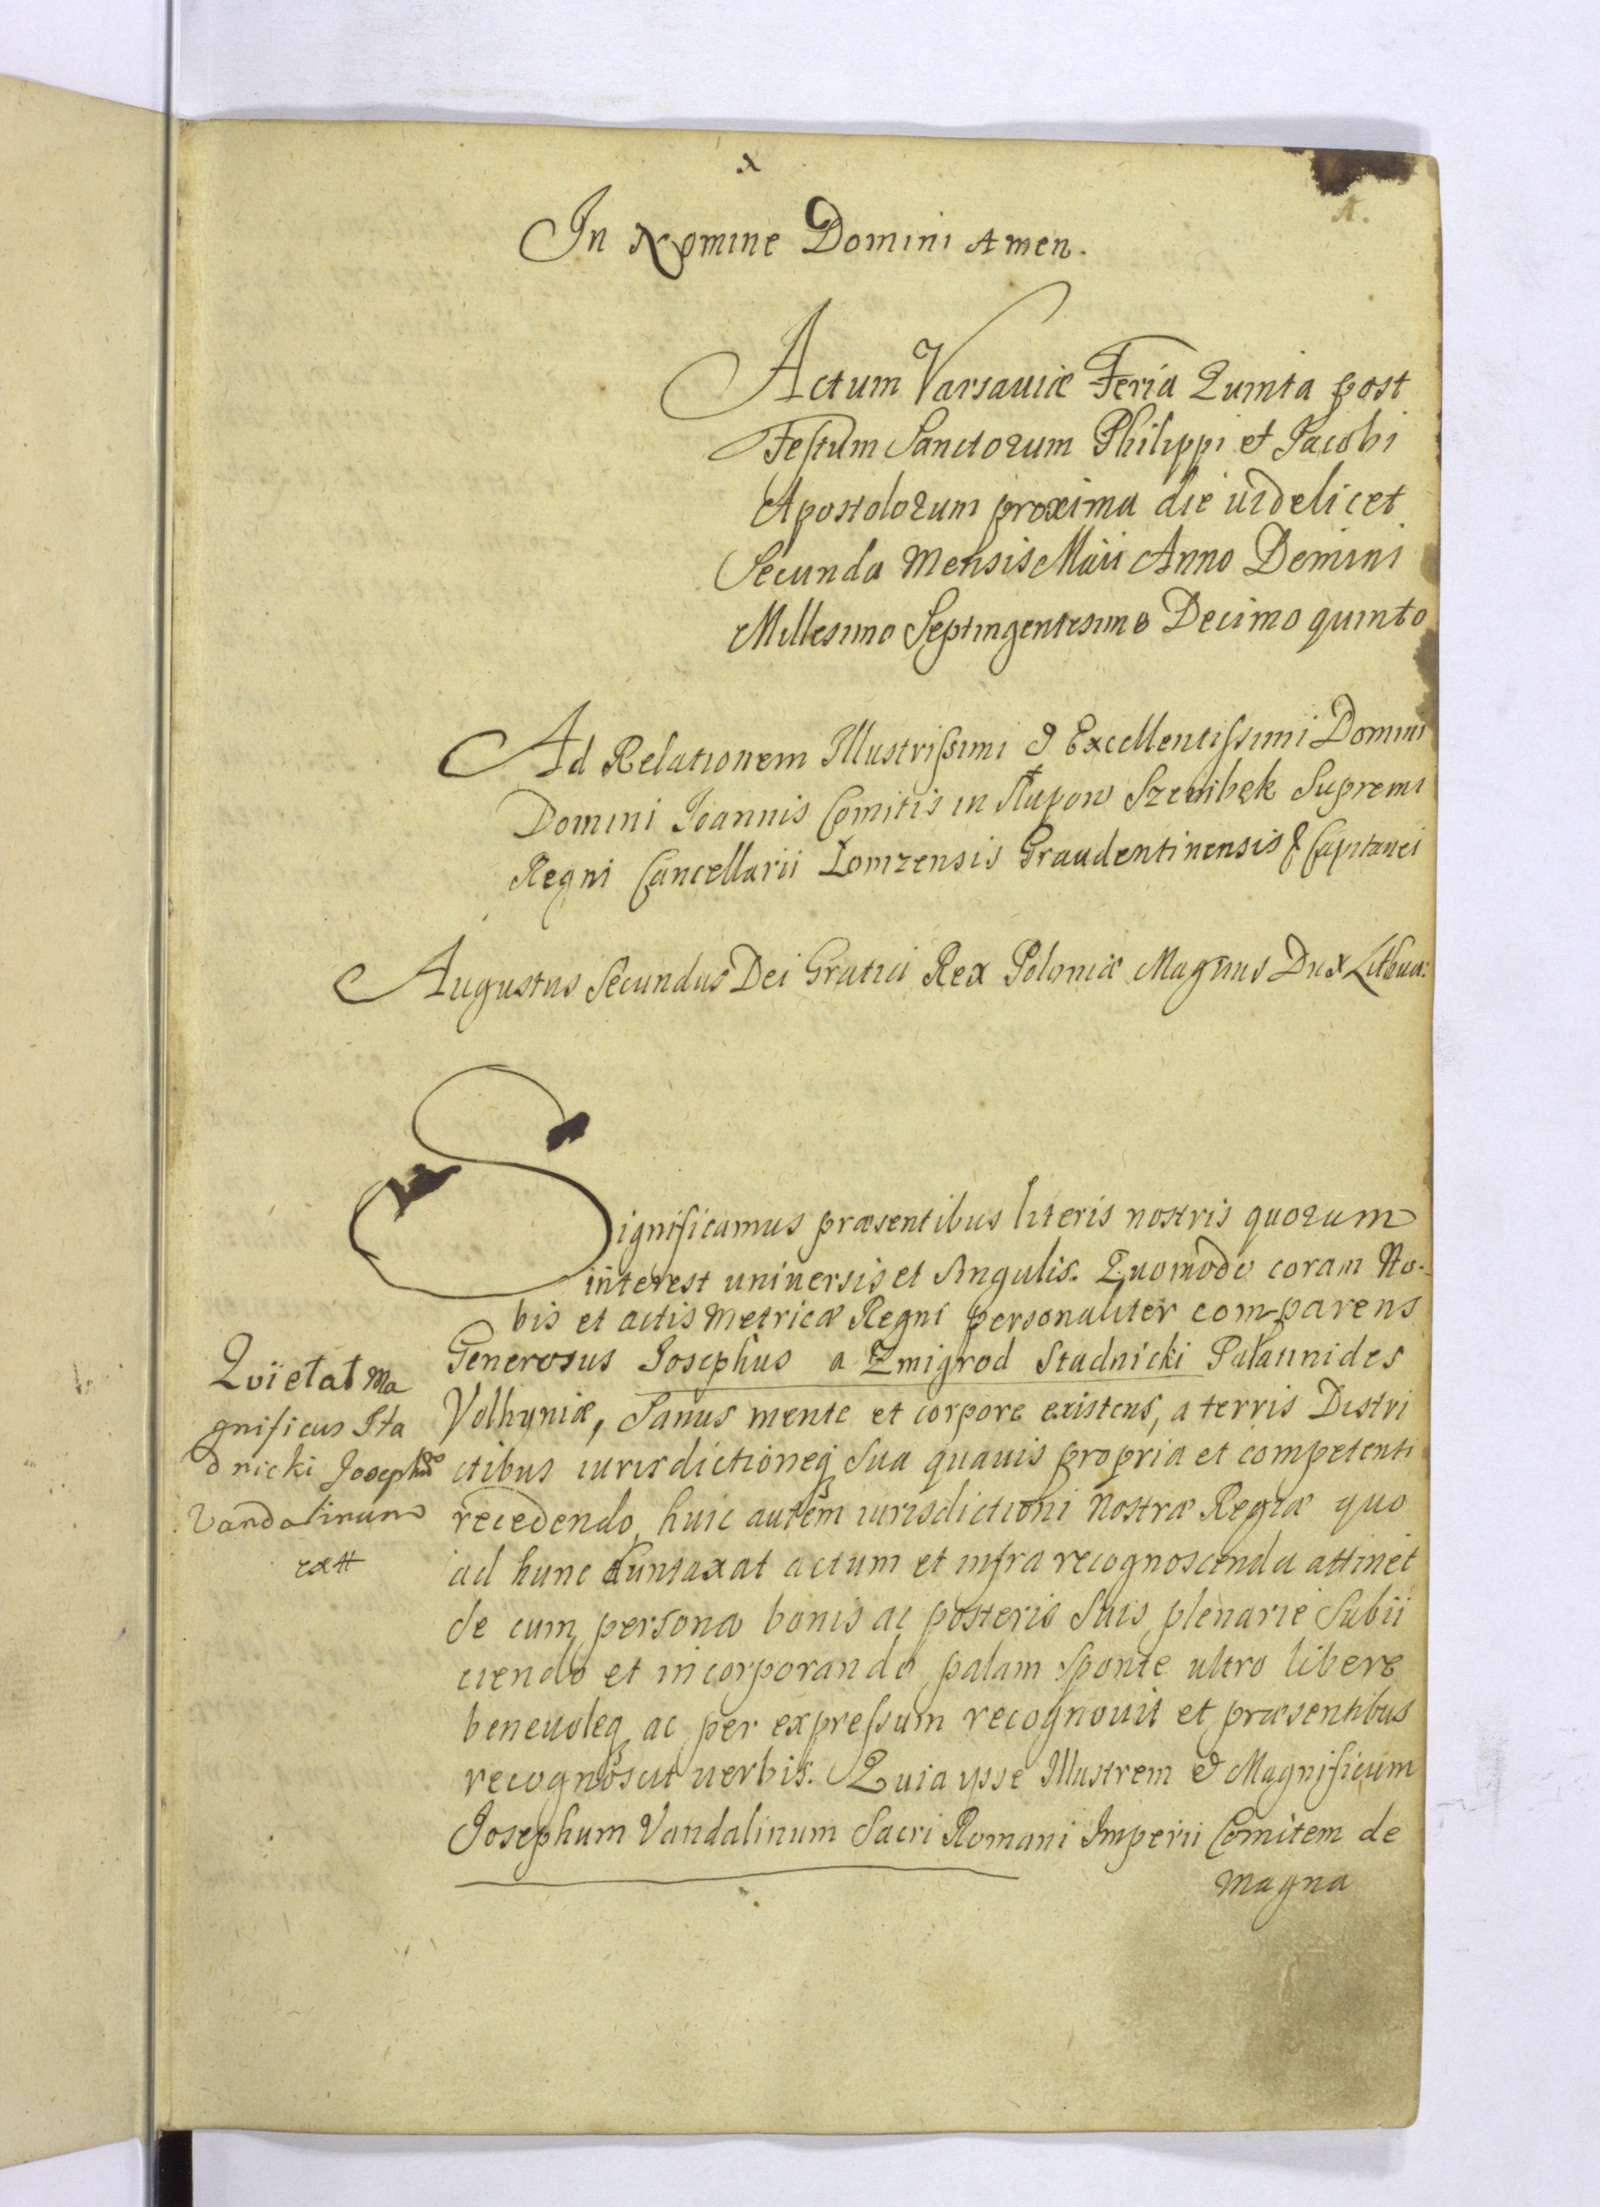 In Nomine Domini Amen.
Actum Varsauiæ Feria Quinta post
Festum Sanctorum Philippi et Jacobi
Apostolorum proxima die uidelicet
Secunda Mensis Maii Anno Domini
Millesimo Septingentesimo Decimo quinto
Ad Relationem Illustrissimi & Excellentissimi Domini
Domini Joannis Comitis in Słupow Szembek Supremi
Regni Cancellarii Lomzensis Graudentinensis & Capitanei
Augustus Secundus Dei Gratia Rex Poloniæ Magnus Dux Lithua:
Significamus præsentibus literis nostris quorum
interest uniuersis et Singulis. Quomodo coram No-
bis et actis Metricæ Regni personaliter comparens
Generosus Josephus a Zmigrod Stadnicki Palatinides
Volhyniæ, Sanus mente et corpore existens, a terris Distri
ctibus iurisdictioneq Sua quauis propria et competenti
recedendo, huic autem iurisdictioni Nostræ Regiæ quo
ad hunc duntaxat actum et infra recognoscenda attinet
de cum persona bonis ac posteris Suis plenarie Subii
ciendo et incorporando palam sponte ultro libere
beneuoleq ac per expressum recognouit et præsentibus
recognoscit uerbis. Quia ipse Illustrem & Magnificum
Josephum Vandalinum Sacri Romani Imperii Comitem de
Magna
Quietat Ma
gnificus Sta
dnicki Josephū
Vandalinum